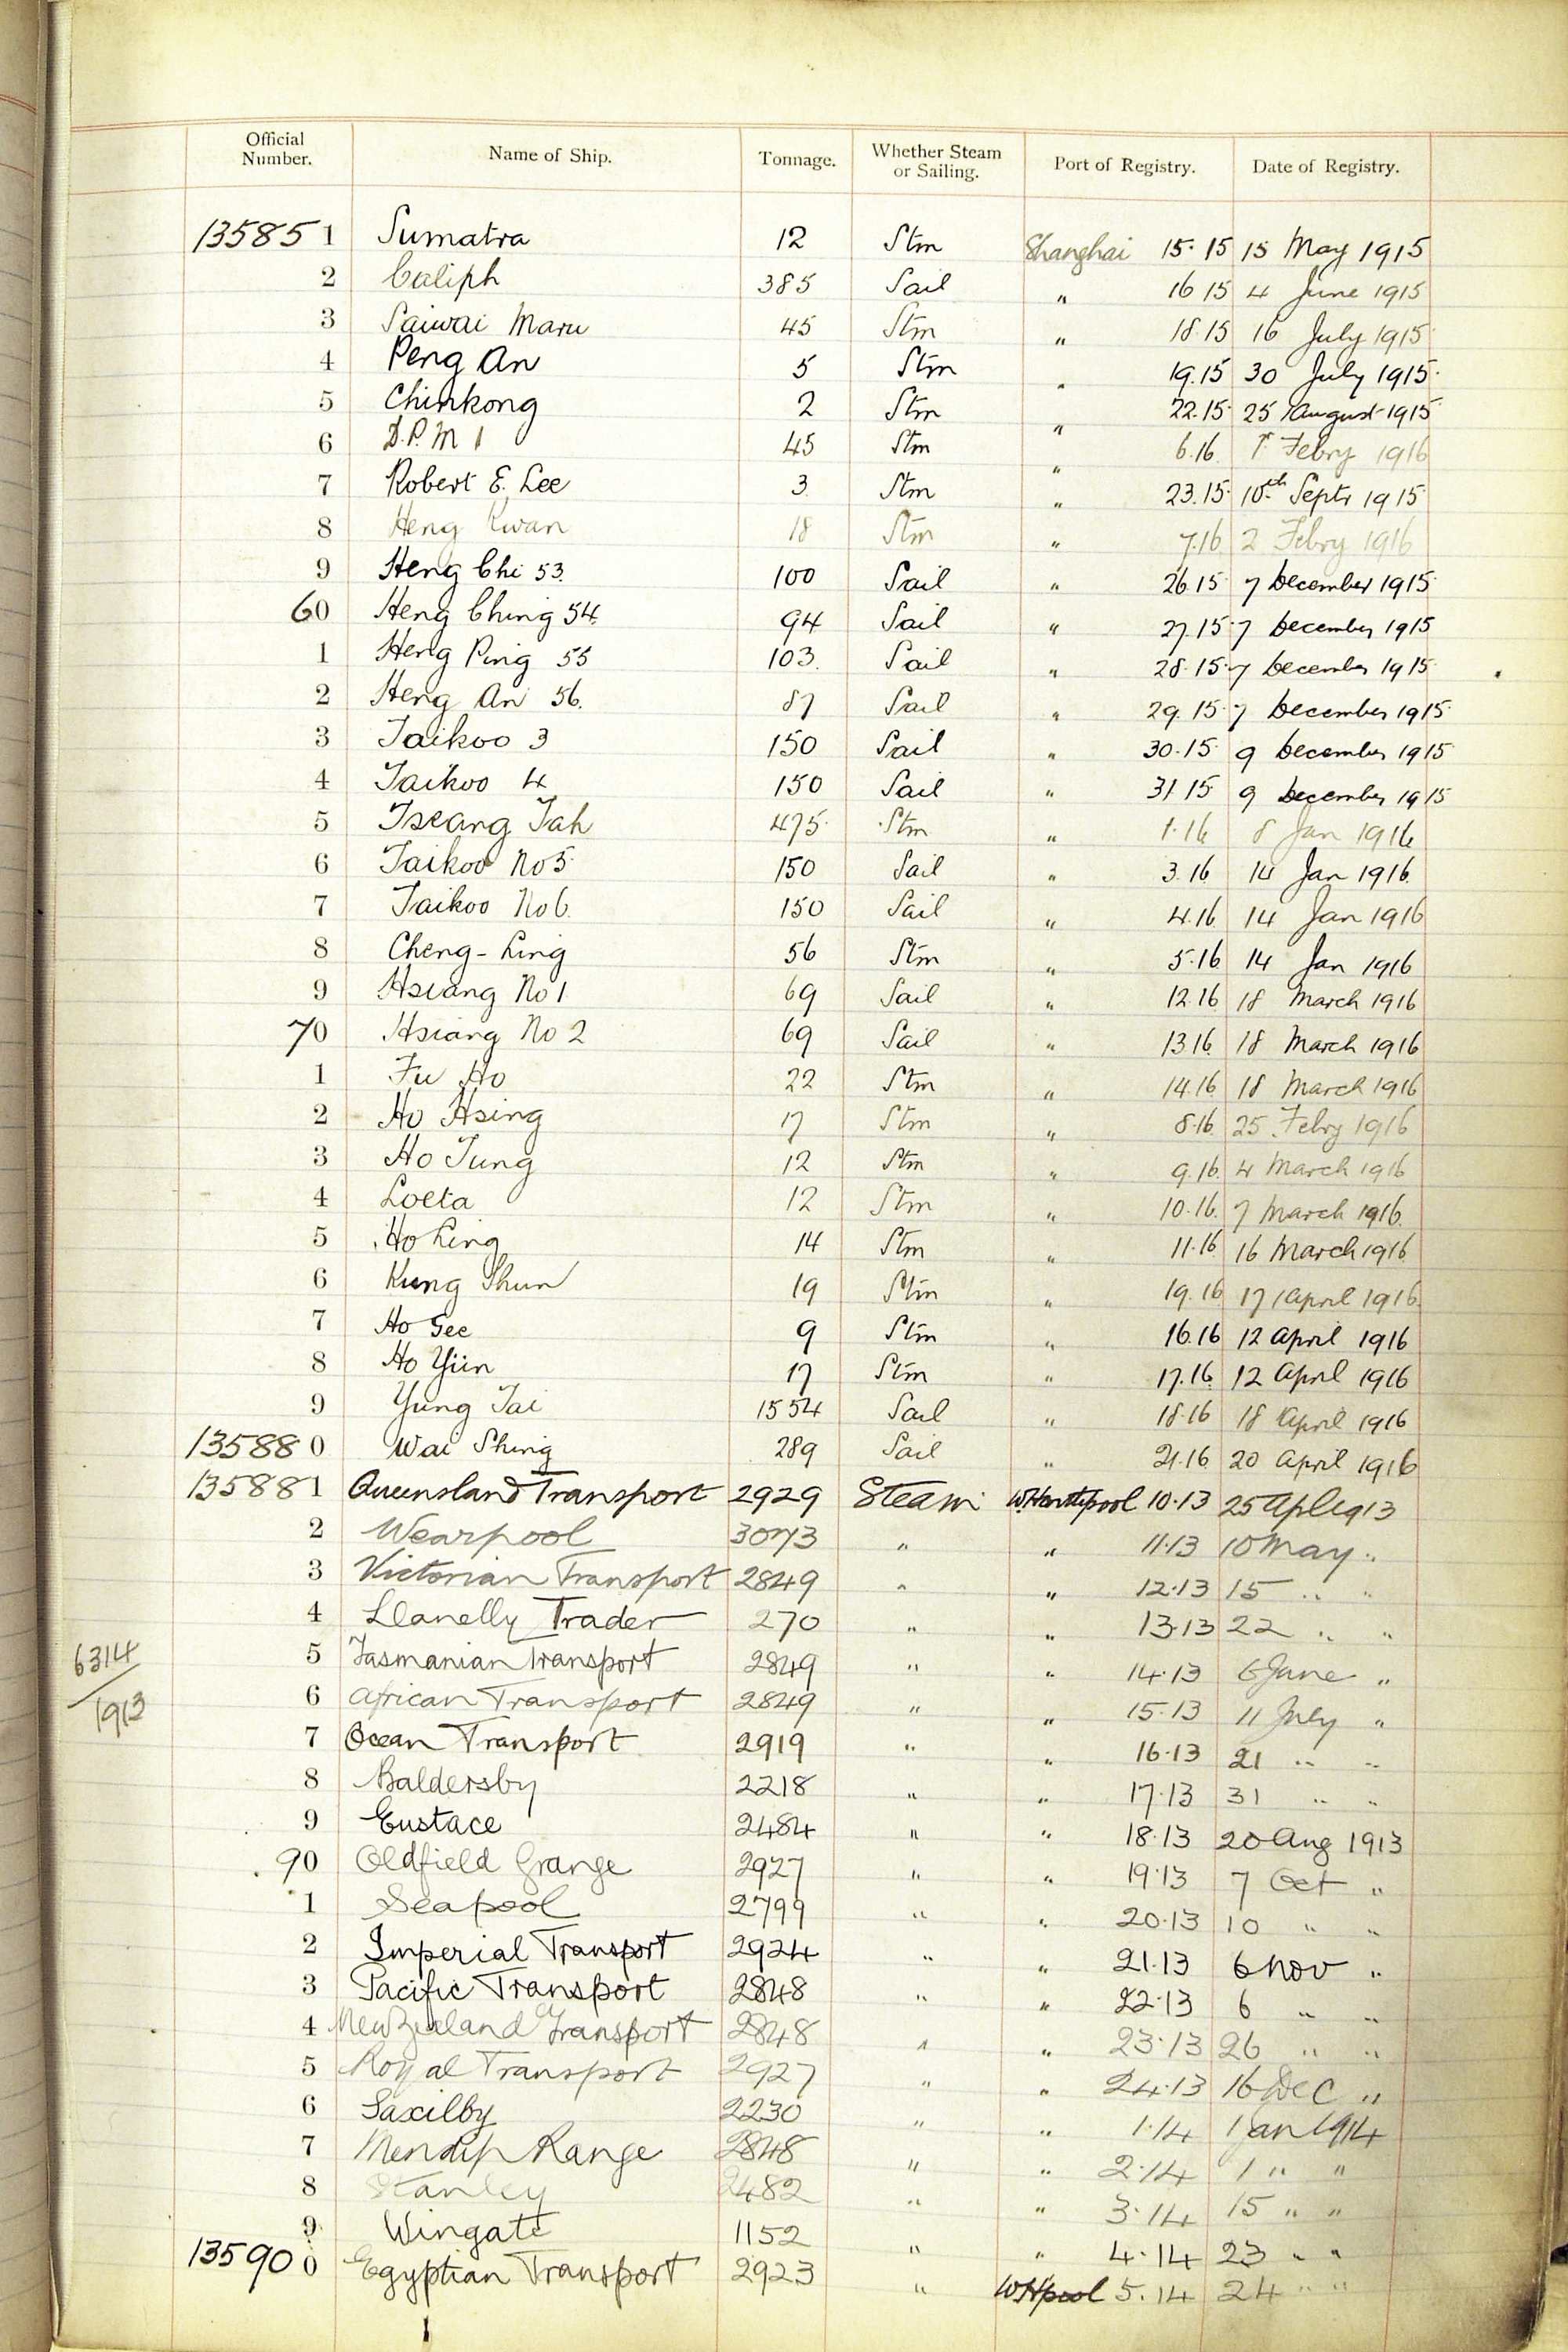 Official Number. Name of Ship. Tonnage. Whether Steam or Sailing. Port of Registry. Date of Registry.
135851 Sumatra 12 Stm Shanghai 15.15 15 May 1915
2 Caliph 385 Sail " 16 15 4 June 1915
3 Saiwai Maru 45 Stm " 18.15 16 July 1915
4 Peng An 5 Stm " 19.15 30 July 1915
5 Chinkong 2 Stm " 22.15 25 August 1915
6 D.P.M 1 45 Stm " 6.16 1st Febry 1916
7 Robert E. Lee 3 Stm " 23.15 10th Septr 1915
8 Heng Kwan 18 Stm " 7.16 2 Febry 1916
9 Heng Chi 53. 100 Sail " 26.15 7 December 1915
60 Heng Ching 54. 94 Sail " 27.15 7 December 1915
1 Heng Ping 55 103. Sail " 28.15 7 December 1915
2 Heng An 56. 87 Sail " 29.15 7 December 1915
3 Taikoo 3 150 Sail " 30.15 9 December 1915
4 Taikoo 4 150 Sail " 31 15 9 December 1915
5 Tseang Tah 475 Stm " 1.16 8 Jan 1916
6 Taikoo No 5 150 Sail " 3.16 14 Jan 1916
7 Taikoo No 6. 150 Sail " 4.16 14 Jan 1916
8 Cheng-Ling 56 Stm " 5.16 14 Jan 1916
9 Hsiang No 1 69 Sail " 12.16 18 March 1916
70 Hsiang No 2 69 Sail " 13 16 18 March 1916
1 Fu Ho 22 Stm " 14.16 18 March 1916
2 Ho Hsing 17 Stm " 8.16 25 Febry 1916
3 Ho Tung 12 Stm " 9.16 4 March 1916
4 Loeta 12 Stm " 10.16 7 March 1916
5 Ho Ling 14 Stm " 11.16 16 March 1916
6 Kung Shun 19 Stm " 19.16 17 April 1916
7 Ho Gee 9 Stm " 16.16 12 April 1916
8 Ho Yün 17 Stm " 17.16 12 April 1916
9 Yung Tai 1554 Sail " 18.16 18 April 1916
135880 Wai Shing 289 Sail " 21.16 20 April 1916
135881 Queensland Transport 2929 Steam W.Hartlpool 10.13 25 Apl 1913
2 Wearpool 3073 " " 11.13 10 May "
3 Victorian Transport 2849 " " 12.13 15 " "
4 Llanelly Trader 270 " " 13.13 22 " "
5 Tasmanian Transport 2849 " " 14.13 6 June "
6314/1913
6 African Transport 2849 " " 15.13 11 July "
7 Ocean Transport 2919 " " 16.13 21 " "
8 Baldersby 2218 " " 17.13 31 " "
9 Eustace 2484 " " 18.13 20 Aug 1913
90 Oldfield Grange 2927 " " 19.13 7 Oct "
1 Seapool 2799 " " 20.13 10 " "
2 Imperial Transport 2924 " " 21.13 6 Nov "
3 Pacific Transport 2848 " " 22.13 6 " "
4 New Zealand Transport 2848 " " 23.13 26 " "
5 Royal Transport 2927 " " 24.13 16 Dec "
6 Saxilby 2230 " " 1.14 1 Jan 1914
7 Mendip Range 2848 " " 2.14 1 " "
8 Stanley 2482 " " 3.14 15 " "
9 Wingate 1152 " " 4.14 23 " "
135900 Egyptian Transport 2923 " W Hpool 5.14 24 " "